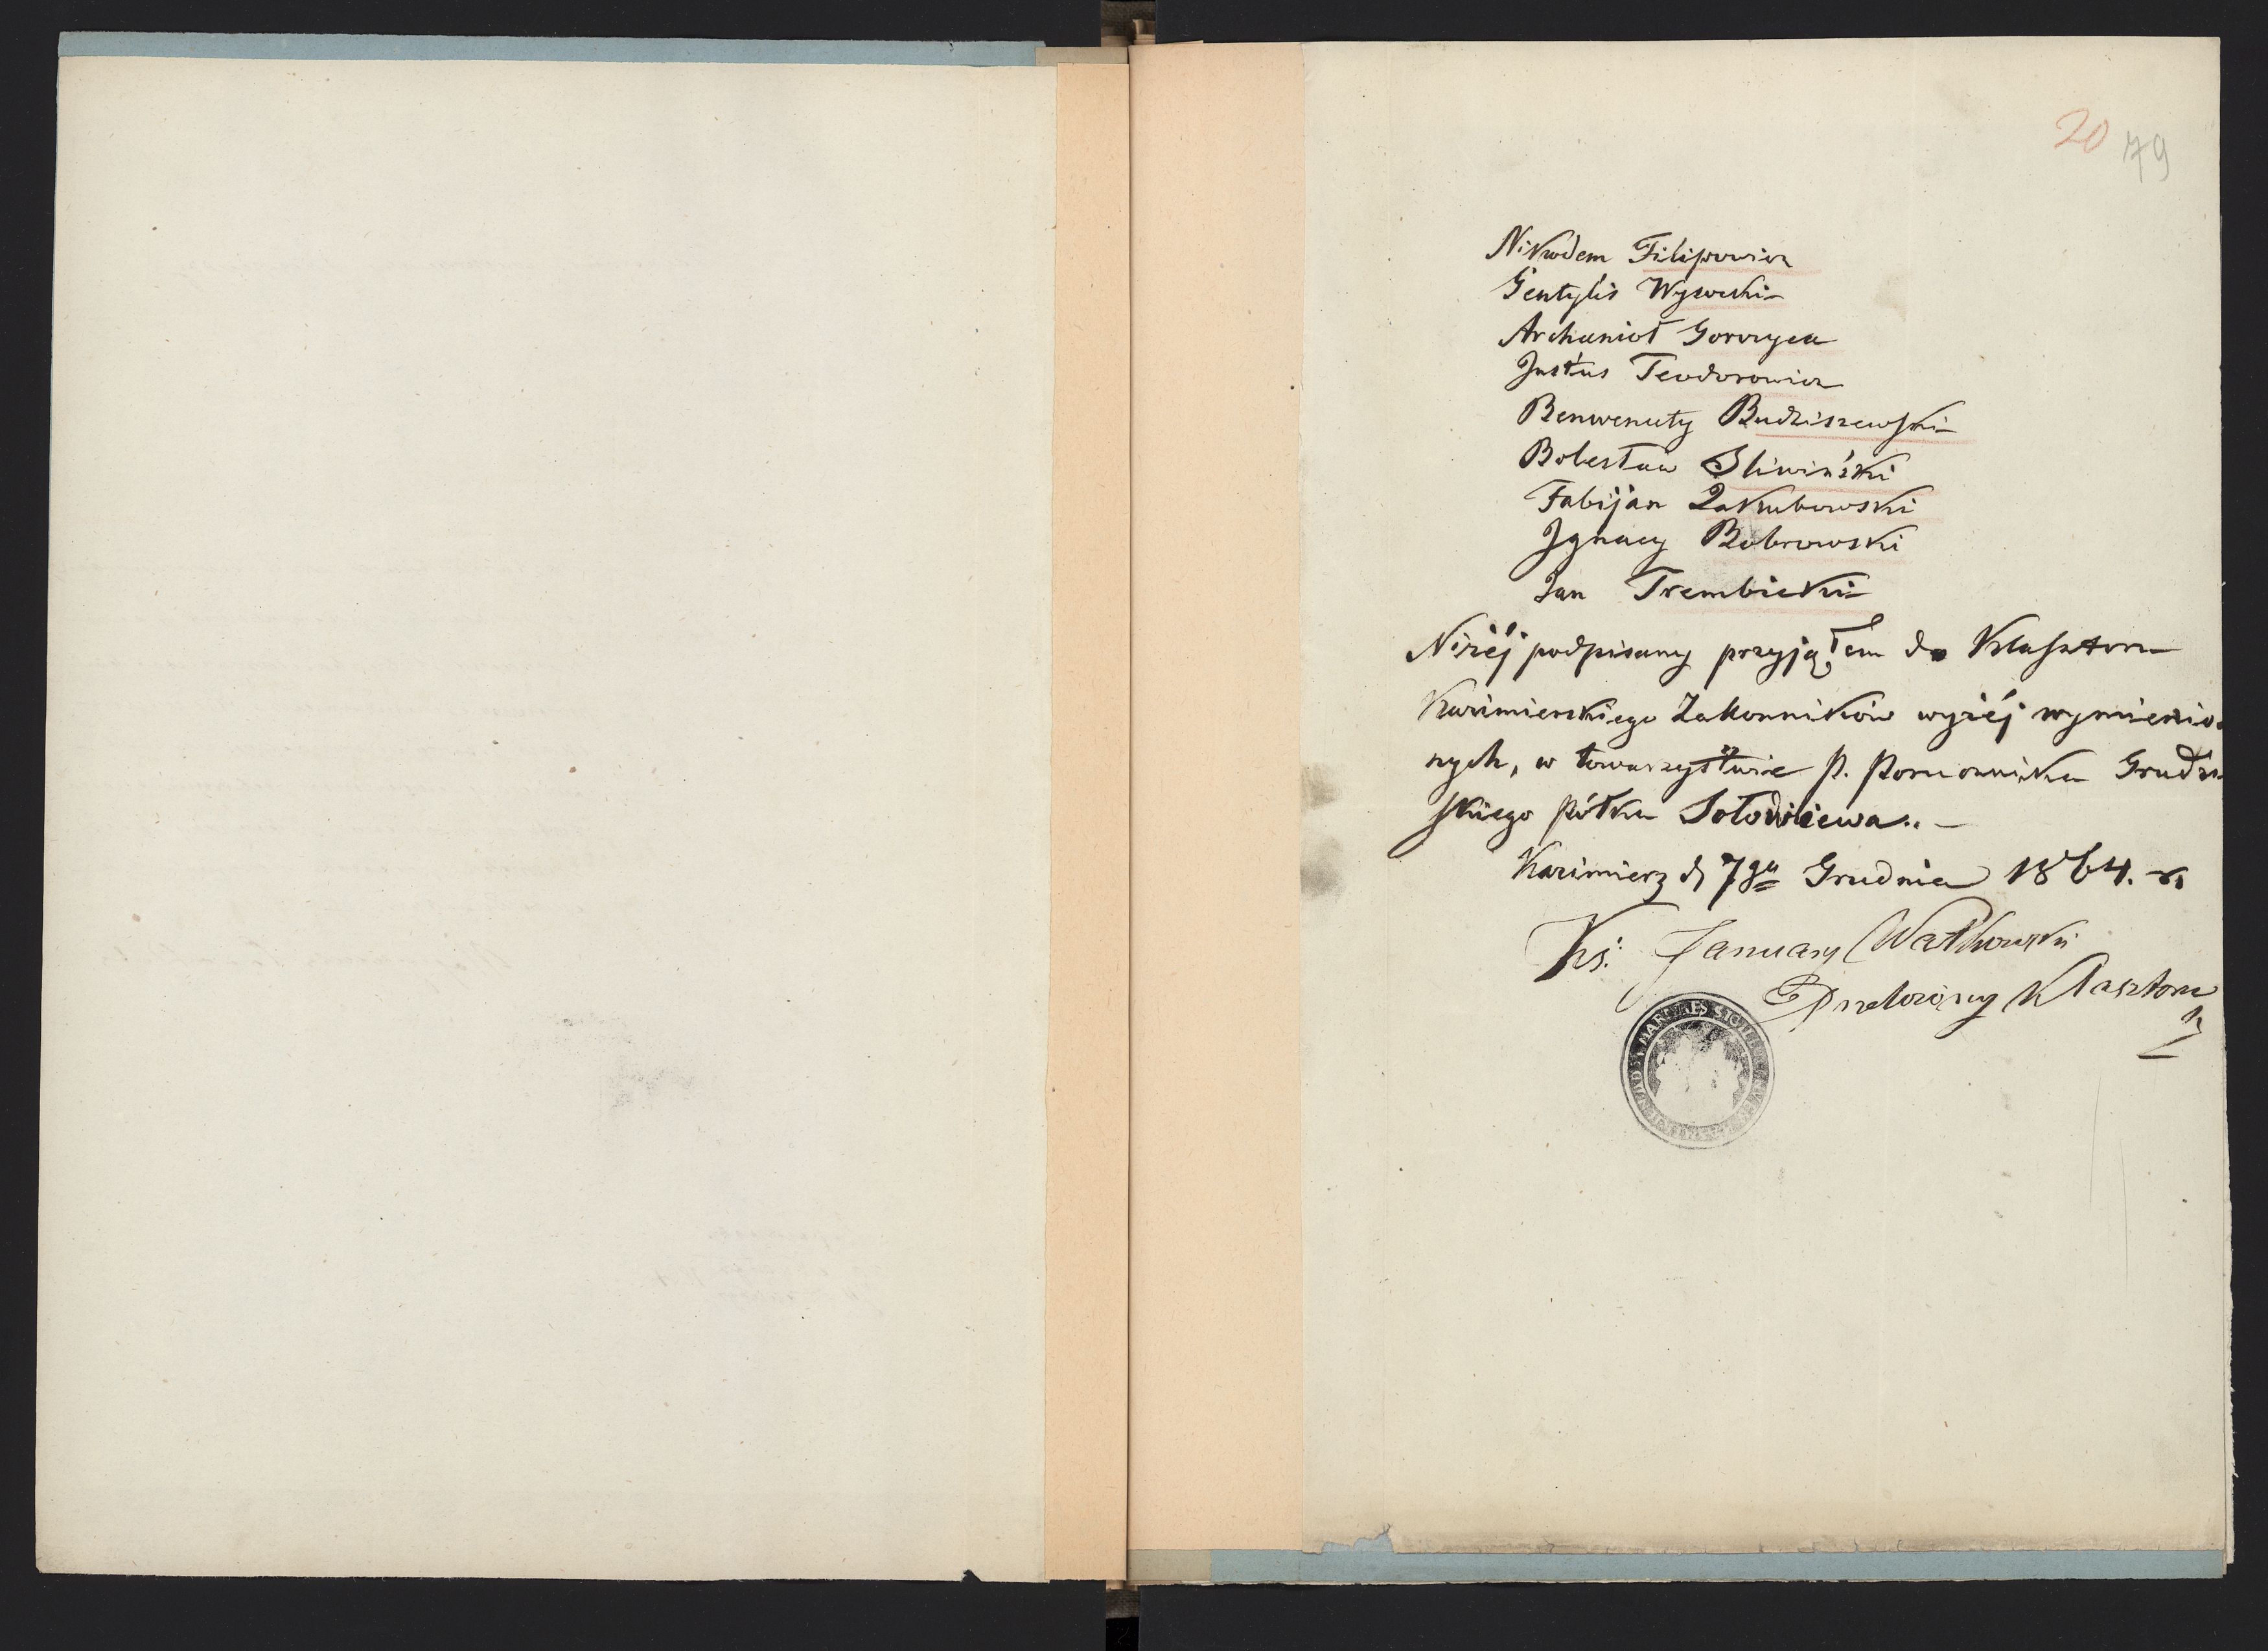 20 79
Nikodem Filipowicz
Gentylis Wysocki
Archanioł Gorzyca
Justus Teodorowicz
Benwenuty Budziszewski
Bolesław Śliwiński
Fabijan Jakubowski
Ignacy Bobrowski
Jan Trembicki
Niżéj podpisany przyjąłem do Klasztoru
Kazimierskiego Zakonników wyżéj wymienio-
nych, w towarzystwie P. Porucznika
skiego Półku Sołowiewa. –
Kazimierz d. 7go Grudnia 1864. r.
Ks: January Watkowski
Przełożony Klasztoru